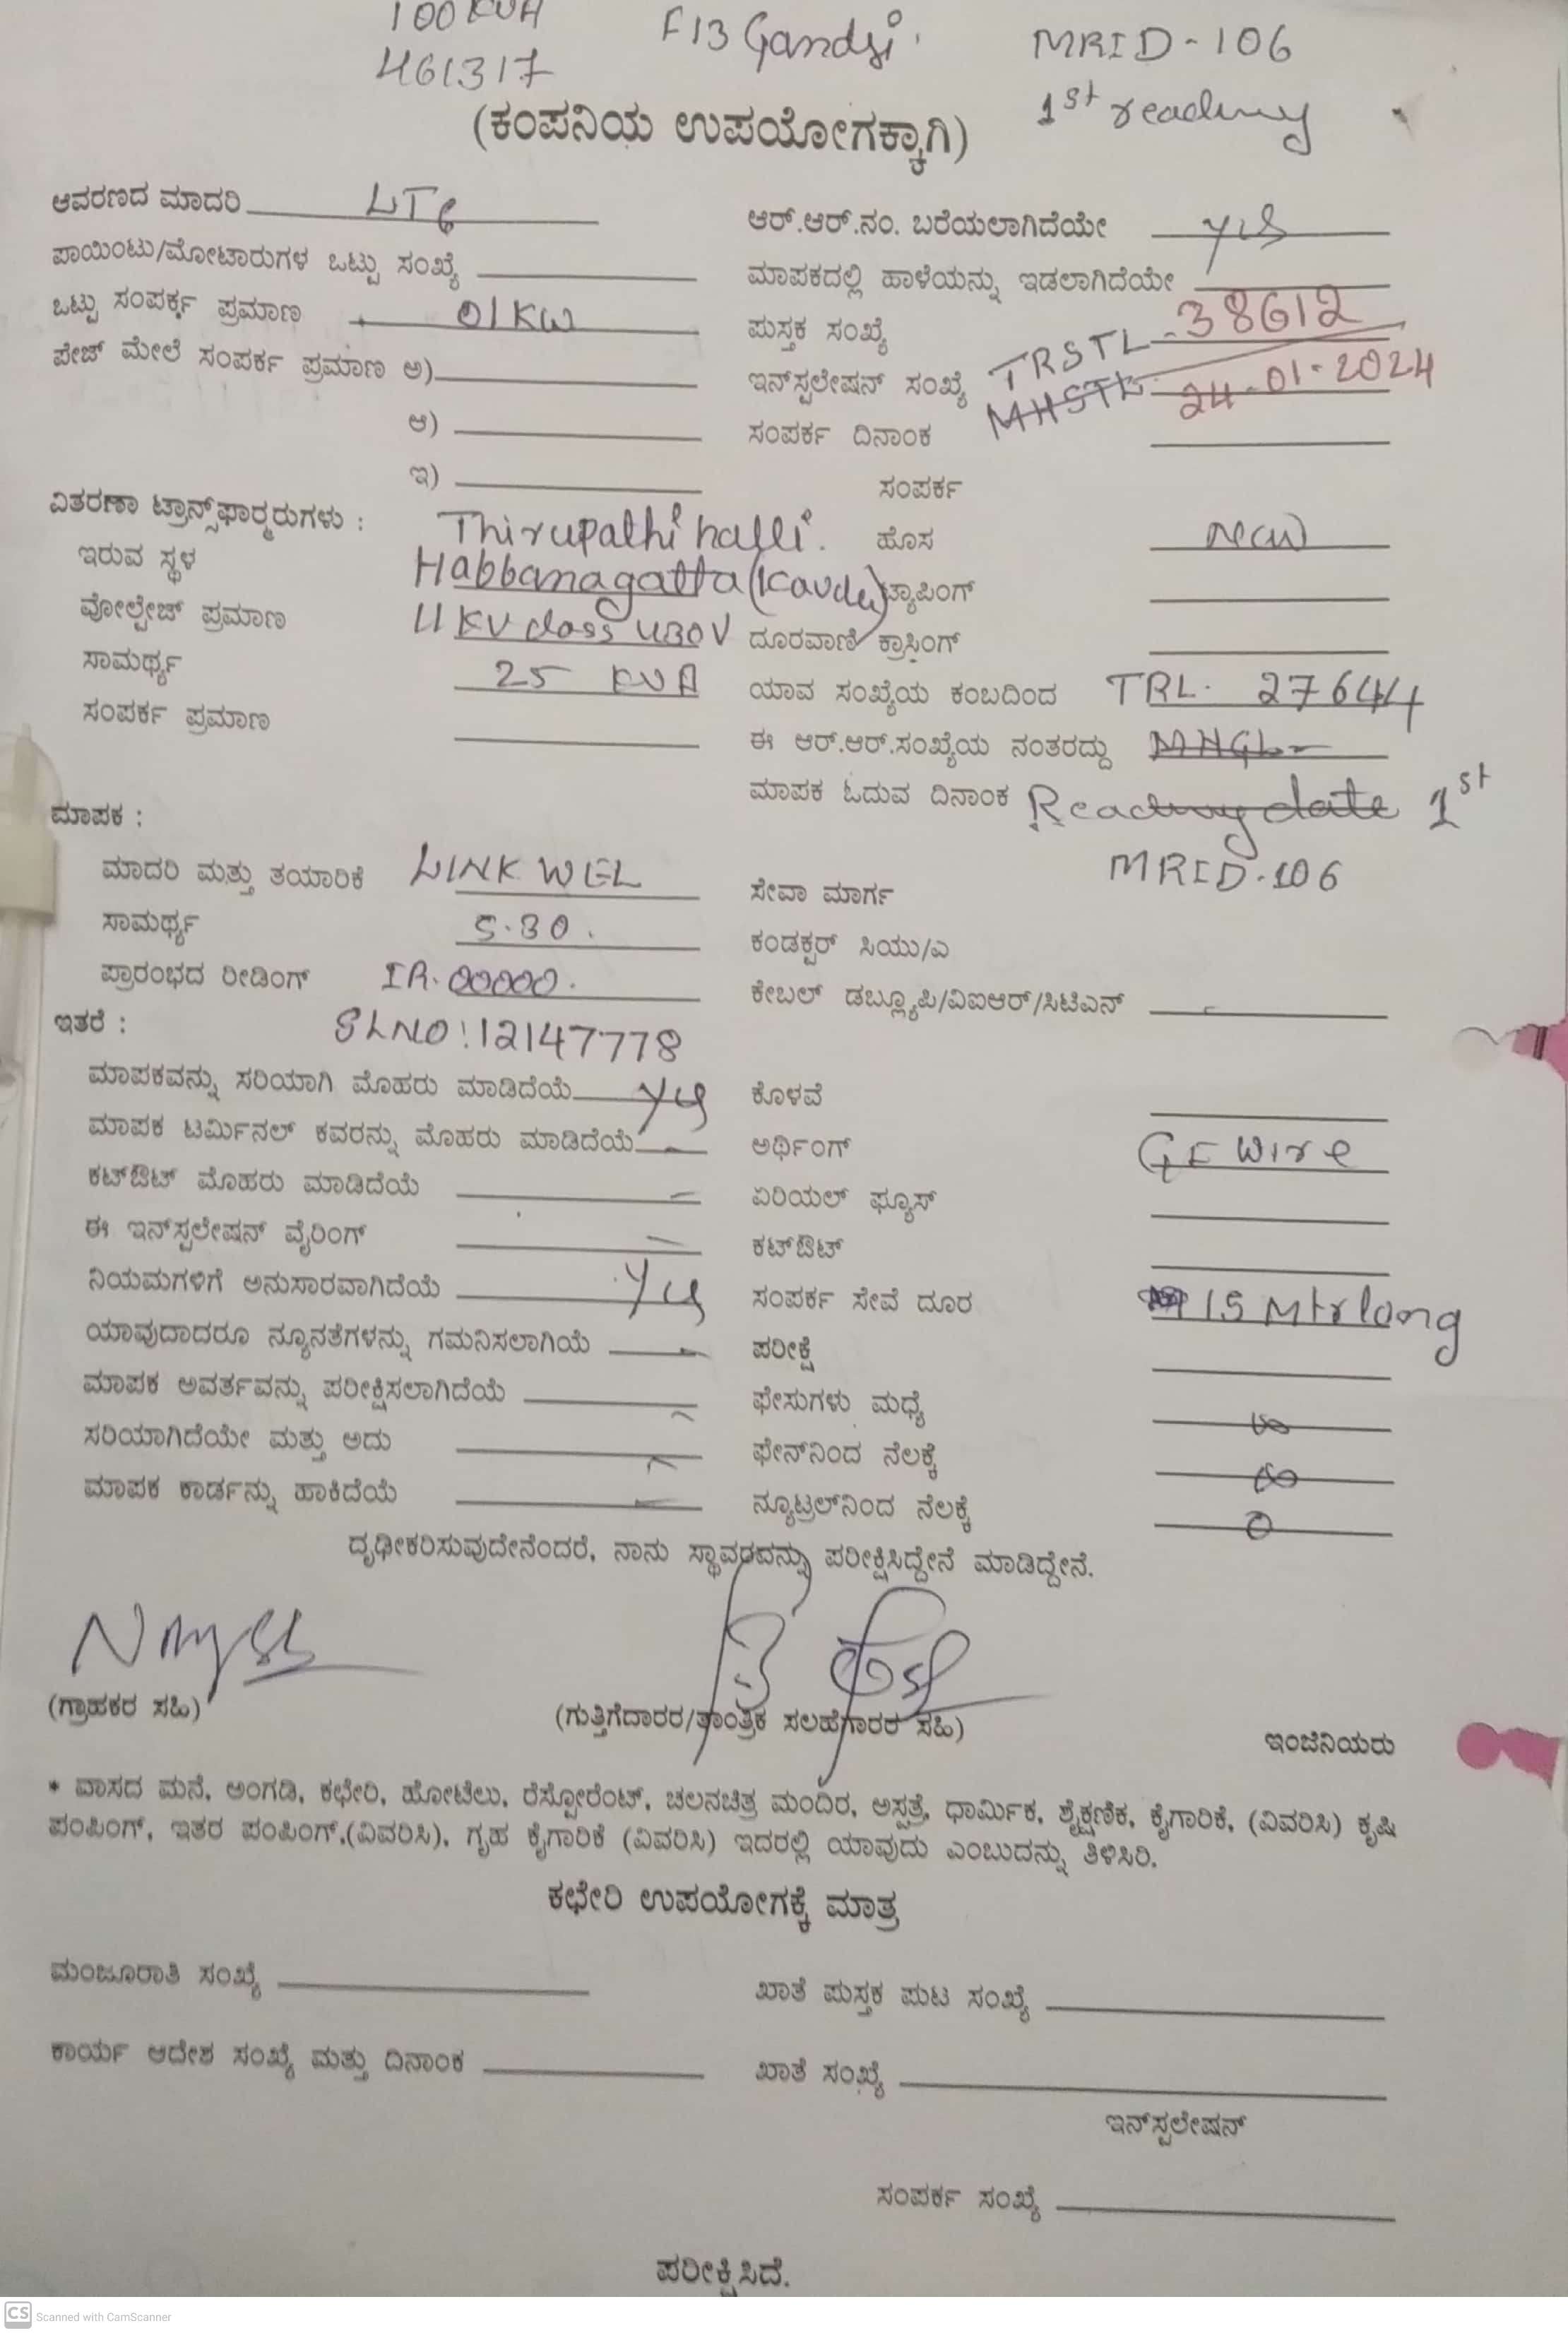 100 KVA F13 Gandsi. MRID-106
461317 1st reading
(ಕಂಪನಿಯ ಉಪಯೋಗಕ್ಕಾಗಿ)
ಆವರಣದ ಮಾದರಿ LT6 ಆರ್.ಆರ್.ನಂ. ಬರೆಯಲಾಗಿದೆಯೇ yes
ಪಾಯಿಂಟು/ಮೋಟಾರುಗಳ ಒಟ್ಟು ಸಂಖ್ಯೆ ಮಾಪಕದಲ್ಲಿ ಹಾಳೆಯನ್ನು ಇಡಲಾಗಿದೆಯೇ
ಒಟ್ಟು ಸಂಪರ್ಕ ಪ್ರಮಾಣ 01KW ಪುಸ್ತಕ ಸಂಖ್ಯೆ TRSTL-38612
ಪೇಜ್ ಮೇಲೆ ಸಂಪರ್ಕ ಪ್ರಮಾಣ ಅ) ಇನ್‌ಸ್ಟಲೇಷನ್ ಸಂಖ್ಯೆ MHSTL 24-01-2024
ಆ) ಸಂಪರ್ಕ ದಿನಾಂಕ
ಇ) ಸಂಪರ್ಕ
ವಿತರಣಾ ಟ್ರಾನ್ಸ್‌ಫಾರ್‍ಮರುಗಳು : Thirupathi halli. ಹೊಸ New
ಇರುವ ಸ್ಥಳ Habbanagatta (Kavalu) ಟ್ಯಾಪಿಂಗ್
ವೋಲ್ಟೇಜ್ ಪ್ರಮಾಣ 11 KV class 430V ದೂರವಾಣಿ ಕ್ರಾಸಿಂಗ್
ಸಾಮರ್ಥ್ಯ 25 KVA ಯಾವ ಸಂಖ್ಯೆಯ ಕಂಬದಿಂದ TRL. 27644
ಸಂಪರ್ಕ ಪ್ರಮಾಣ ಈ ಆರ್.ಆರ್.ಸಂಖ್ಯೆಯ ನಂತರದ್ದು MHGL
ಮಾಪಕ ಓದುವ ದಿನಾಂಕ Reading date 1st
ಮಾಪಕ :
ಮಾದರಿ ಮತ್ತು ತಯಾರಿಕೆ LINK WEL ಸೇವಾ ಮಾರ್ಗ MRID-106
ಸಾಮರ್ಥ್ಯ 5-30. ಕಂಡಕ್ಟರ್ ಸಿಯು/ಎ
ಪ್ರಾರಂಭದ ರೀಡಿಂಗ್ IR-00000. ಕೇಬಲ್ ಡಬ್ಲ್ಯೂಪಿ/ವಿಐಆರ್/ಸಿಟಿಎನ್
ಇತರೆ : SLNO:12147778
ಮಾಪಕವನ್ನು ಸರಿಯಾಗಿ ಮೊಹರು ಮಾಡಿದೆಯೆ yes ಕೊಳವೆ
ಮಾಪಕ ಟರ್ಮಿನಲ್ ಕವರನ್ನು ಮೊಹರು ಮಾಡಿದೆಯೆ ಅರ್ಥಿಂಗ್ GI Wire
ಕಟ್‌ಔಟ್ ಮೊಹರು ಮಾಡಿದೆಯೆ ಏರಿಯಲ್ ಫ್ಯೂಸ್
ಈ ಇನ್‌ಸ್ಟಲೇಷನ್ ವೈರಿಂಗ್ ಕಟ್‌ಔಟ್
ನಿಯಮಗಳಿಗೆ ಅನುಸಾರವಾಗಿದೆಯೆ yes ಸಂಪರ್ಕ ಸೇವೆ ದೂರ 15 Mtr long
ಯಾವುದಾದರೂ ನ್ಯೂನತೆಗಳನ್ನು ಗಮನಿಸಲಾಗಿಯೆ ಪರೀಕ್ಷೆ
ಮಾಪಕ ಅವರ್ತವನ್ನು ಪರೀಕ್ಷಿಸಲಾಗಿದೆಯೆ ಫೇಸುಗಳು ಮಧ್ಯೆ ∞
ಸರಿಯಾಗಿದೆಯೇ ಮತ್ತು ಅದು ಫೇನ್‌ನಿಂದ ನೆಲಕ್ಕೆ ∞
ಮಾಪಕ ಕಾರ್ಡನ್ನು ಹಾಕಿದೆಯೆ ನ್ಯೂಟ್ರಲ್‌ನಿಂದ ನೆಲಕ್ಕೆ 0
ದೃಢೀಕರಿಸುವುದೇನೆಂದರೆ, ನಾನು ಸ್ಥಾವರವನ್ನು ಪರೀಕ್ಷಿಸಿದ್ದೇನೆ ಮಾಡಿದ್ದೇನೆ.
(ಗ್ರಾಹಕರ ಸಹಿ) (ಗುತ್ತಿಗೆದಾರರ/ತಾಂತ್ರಿಕ ಸಲಹೆಗಾರರ ಸಹಿ) ಇಂಜಿನಿಯರು
* ವಾಸದ ಮನೆ, ಅಂಗಡಿ, ಕಛೇರಿ, ಹೋಟೆಲು, ರೆಸ್ಟೋರೆಂಟ್, ಚಲನಚಿತ್ರ ಮಂದಿರ, ಅಸ್ಪತ್ರೆ, ಧಾರ್ಮಿಕ, ಶೈಕ್ಷಣಿಕ, ಕೈಗಾರಿಕೆ, (ವಿವರಿಸಿ) ಕೃಷಿ
ಪಂಪಿಂಗ್, ಇತರ ಪಂಪಿಂಗ್,(ವಿವರಿಸಿ), ಗೃಹ ಕೈಗಾರಿಕೆ (ವಿವರಿಸಿ) ಇದರಲ್ಲಿ ಯಾವುದು ಎಂಬುದನ್ನು ತಿಳಿಸಿರಿ.
ಕಛೇರಿ ಉಪಯೋಗಕ್ಕೆ ಮಾತ್ರ
ಮಂಜೂರಾತಿ ಸಂಖ್ಯೆ ಖಾತೆ ಪುಸ್ತಕ ಪುಟ ಸಂಖ್ಯೆ
ಕಾರ್ಯ ಆದೇಶ ಸಂಖ್ಯೆ ಮತ್ತು ದಿನಾಂಕ ಖಾತೆ ಸಂಖ್ಯೆ
ಇನ್‌ಸ್ಟಲೇಷನ್
ಸಂಪರ್ಕ ಸಂಖ್ಯೆ
ಪರೀಕ್ಷಿಸಿದೆ.
CS Scanned with CamScanner